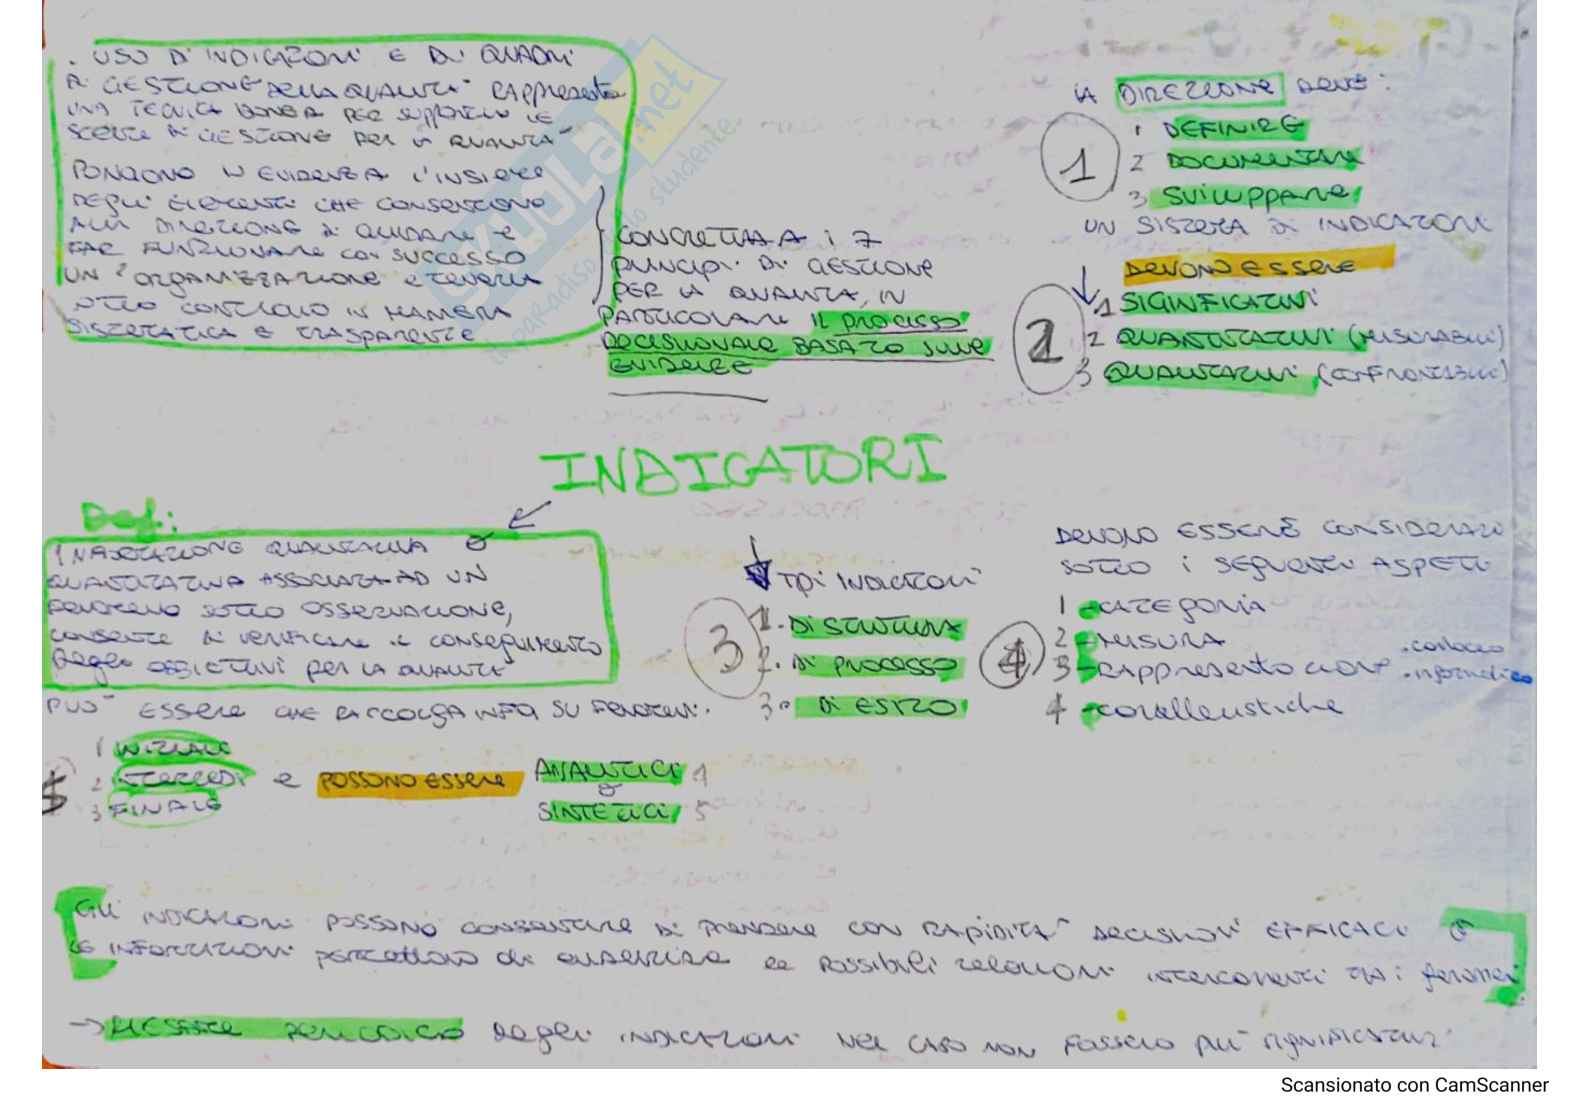 . USO DI INDICATORI E DI QUADRI
DI GESTIONE DELLA QUALITÀ RAPPresenta
UNA TECNICA IDONEA PER SUPPORTARE LE
SCELTE DI GESTIONE PER LA QUALITÀ
PONGONO IN EVIDENZA L'INSIEME
DEGLI ELEMENTI CHE CONSENTONO
ALLA DIREZIONE DI GUIDARE e
FAR FUNZIONARE con SUCCESSO
UN'ORGANIZZAZIONE e tenerla
SOTTO CONTROLLO IN MANIERA
SISTEMATICA E TRASPARENTE
CONCRETIZZA i 7
PRINCIPI DI GESTIONE
PER LA QUALITÀ, IN
PARTICOLARE IL PROCESSO
DECISIONALE BASATO SULLE
EVIDENZE
LA DIREZIONE DEVE:
1
1 DEFINIRE
2 DOCUMENTARE
3 SVILUPPARE
UN SISTEMA DI INDICATORI
DEVONO ESSERE
2
1 SIGINFICATIVI
2 QUANTITATIVI (MISURABILI)
3 QUALITATIVI (CONFRONTABILI)
INDICATORI
Def:
INFORMAZIONE QUALITATIVA O
QUANTITATIVA ASSOCIATA AD UN
FENOMENO SOTTO OSSERVAZIONE,
CONSENTE DI VERIFICARE il conseguimento
degli OBIETTIVI PER LA QUALITÀ
PUÒ ESSERE CHE RACCOLGA INFO SU FENOMENI.
1 INIZIALE
2 INTERMEDI e POSSONO ESSERE ANALITICI 4
o
3 FINALE SINTETICI 5
3
TIPI INDICATORI
1. DI STRUTTURA
2. DI PROCESSO
3. DI ESITO
DEVONO ESSERE CONSIDERATI
SOTTO I SEGUENTI ASPETTI
4
1 - CATEGORIA
2 - MISURA
3 - RAPPRESENTAZIONE .cartaceo
.informatico
4 - caratteristiche
GLI INDICATORI POSSONO CONSENTIRE DI PRENDERE CON RAPIDITÀ DECISIONI EFFICACI e
LE INFORMAZIONI permettono di evidenziare le POSSIBILI relazioni intercorrenti tra i fenomeni
-> RIESAME PERIODICO degli INDICATORI NEL CASO NON FOSSERO PIÙ SIGNIFICATIVI
SKUOLA.net
il paradiso dello studente
Scansionato con CamScanner